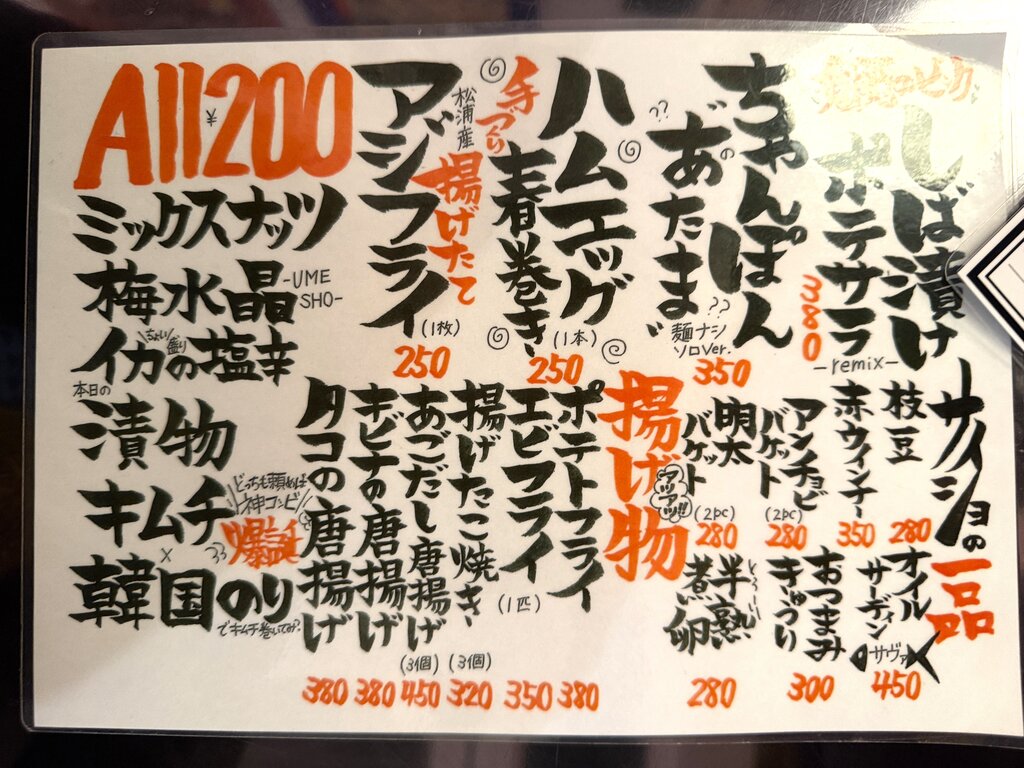 サイショの一品
しば漬け
ポテサラ
-remix-
380
枝豆
280
赤ウインナー
350
アンチョビ
バケット
(2pc)
280
明太
バケット
(2pc)
280
オイル
サーディン
サヴァ
450
おつまみ
きゅうり
300
とろ〜り
半熟
煮卵
280
ちゃんぽん
??
あのたまご
??
麺ナシ
ソロver.
350
ハムエッグ
手づくり
春巻き
(1本)
250
松浦産
アジフライ
揚げたて
(1枚)
250
揚げ物
アツアツ!!
ポテトフライ
380
エビフライ
(1匹)
350
揚げたこ焼き
(3個)
320
あごだし唐揚げ
(3個)
450
キビナの唐揚げ
380
タコの唐揚げ
380
All ¥200
ミックスナッツ
梅水晶
-UME
SHO-
ちょい盛り
イカの塩辛
本日の
漬物
キムチ
どっちも頼めば
神コンビ
爆誕
×
韓国のり
でキムチ巻いてみ?